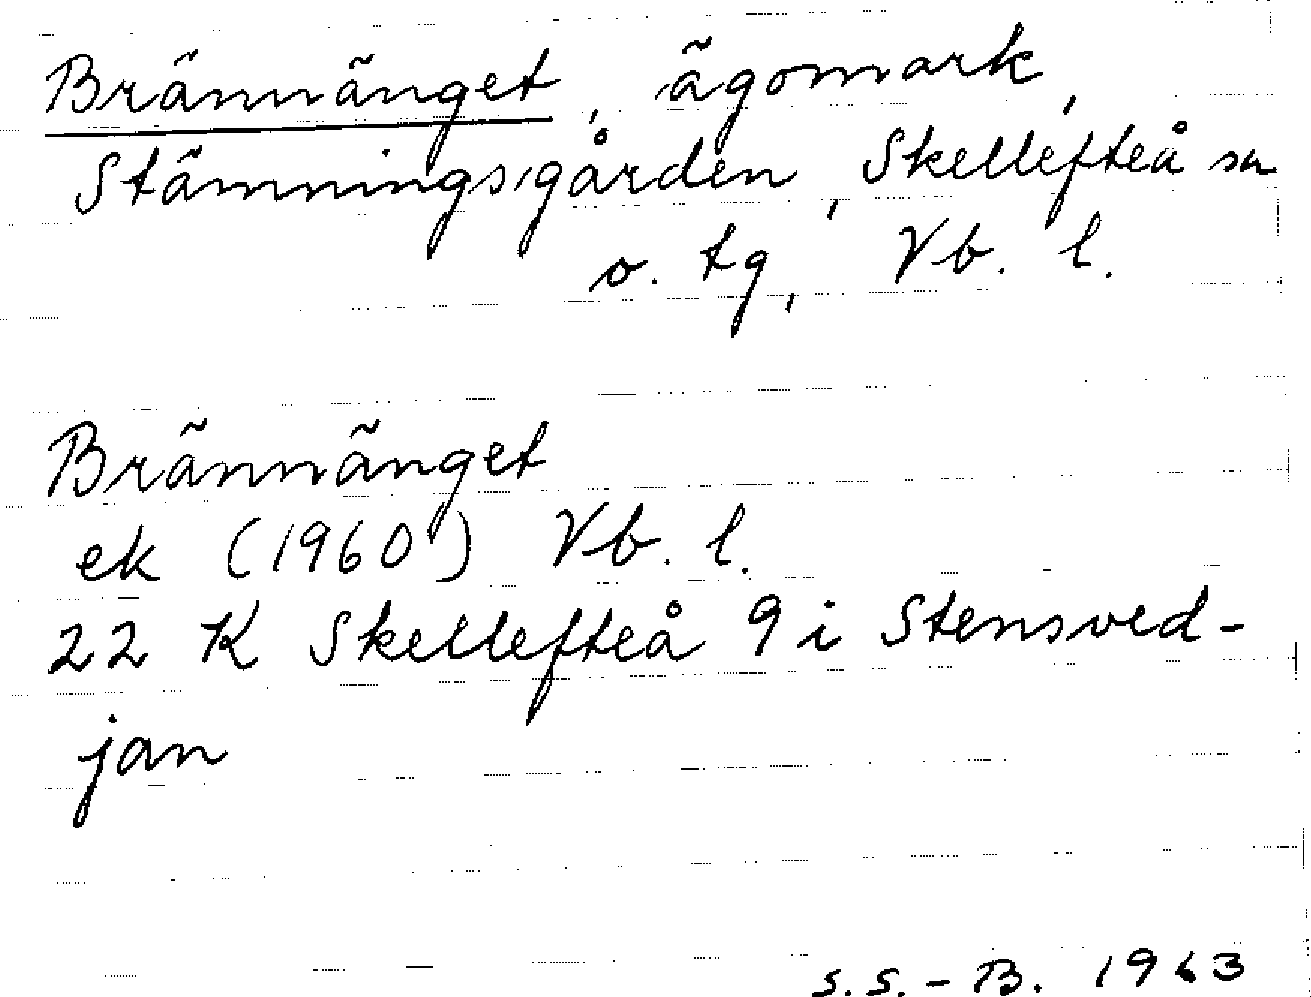 Brännänget, ägomark,
Stämningsgården, Skellefteå sn
o. tg, Vb. l.
Brännänget
ek (1960) Vb. l.
22 K Skellefteå 9 i Stensved-
jan
S.S.-B. 1963